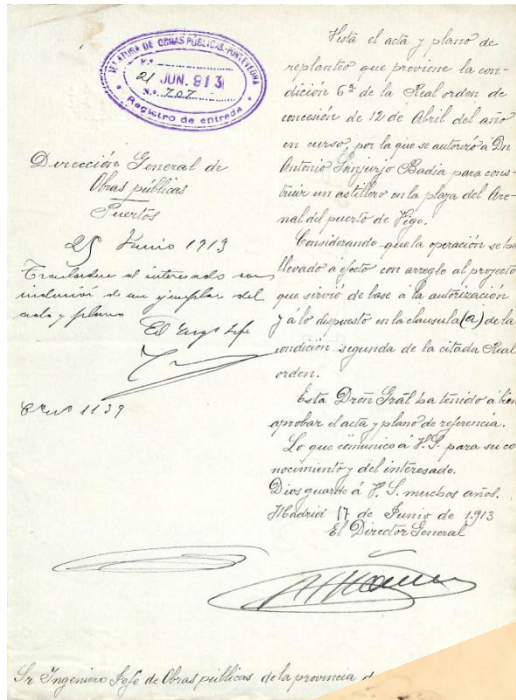 JEFATURA DE OBRAS PÚBLICAS-PONTEVEDRA
21 JUN. 913
N.º 707
Registro de entrada
Dirección General de
Obras públicas
Puertos
25 Junio 1913
Trasládese al interesado con
inclusión de un ejemplar del
acta y plano
El Ingº Jefe
1139
Vista el acta y plano de
replanteo que previene la con-
dición 6ª de la Real orden de
concesión de 12 de Abril del año
en curso, por la que se autorizó a Dn
Antonio Sanjurjo Badia para cons-
truir un astillero en la playa del Are-
nal del puerto de Vigo.
Considerando que la operación se ha
llevado á efecto con arreglo al proyecto
que sirvió de base a la autorización
y á lo dispuesto en la clausula (a) de la
condición segunda de la citada Real
orden.
Esta Dron Gral ha tenido á bien
aprobar el acta y plano de referencia.
Lo que comunico á V.S. para su co
nocimiento y del interesado.
Dios guarde á V.S. muchos años.
Madrid 17 de Junio de 1913
El Director General
Sr Ingeniero Jefe de Obras públicas de la provincia